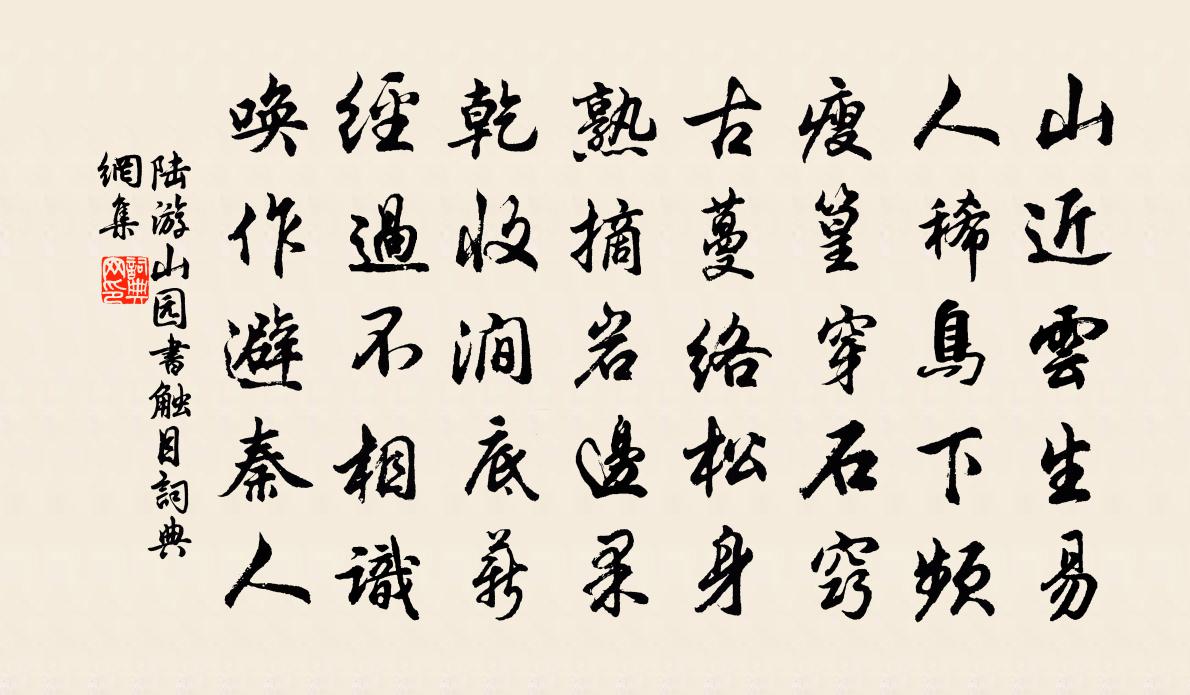 山近雲生易
人稀鳥下頻
瘦篁穿石竅
古蔓絡松身
熟摘岩邊果
乾收澗底薪
經過不相識
喚作避秦人
陆游山园書触目詞典
網集
詞典
网印